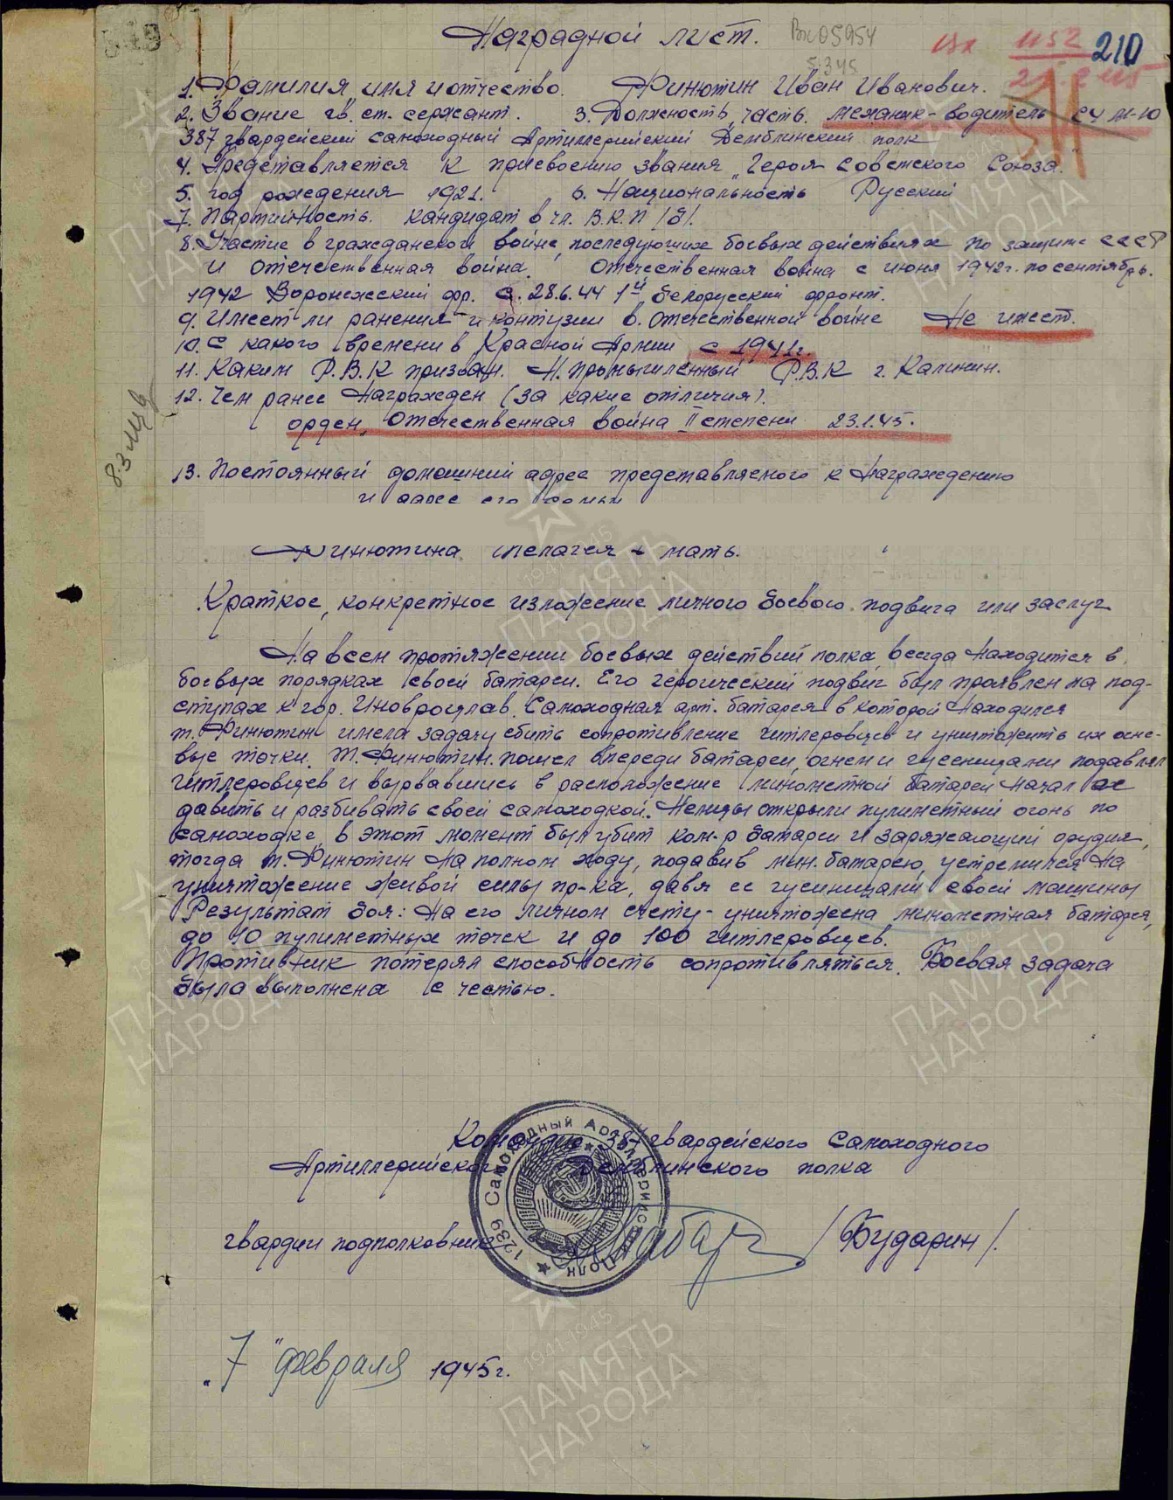 Наградной лист.
Вх 05954
5.3.45
вх 1152
210
1. Фамилия имя и отчество. Финютин Иван Иванович.
2. Звание гв. ст. сержант. 3. Должность, часть. механик-водитель СУ
387 гвардейский самоходный Артиллерийский Демблинский полк
4. Представляется к присвоению звания „Героя Советского Союза."
5. год рождения 1921. 6. Национальность Русский
7. Партийность. кандидат в чл. В.К.П /б/.
8. Участие в гражданской войне, последующих боевых действиях по защите СССР
и отечественная война. Отечественная война с июня 1942г. по сентябрь.
1942 Воронежский фр. с. 28.6.44 1й Белорусский фронт.
9. Имеет ли ранения и контузии в. отечественной войне Не имеет.
10. С какого времени в Красной Армии с 1941г.
11. Каким Р.В.К призван. Н. Промышленный Р.В.К г. Калинин.
12. Чем ранее Награжден (за какие отличия).
орден, Отечественная война II степени 23.1.45.
13. Постоянный домашний адрес представляемого к Награждению
и адрес его семьи
Финютина Пелагея - мать.
Краткое, конкретное изложение личного боевого подвига или заслуг
На всем протяжении боевых действий полка, всегда Находится в
боевых порядках своей батареи. Его героический подвиг был проявлен на под-
ступах к гор. Иновроцлав. Самоходная арт. батарея в которой Находился
т. Финютин имела задачу сбить сопротивление гитлеровцев и уничтожить их огне-
вые точки. Т. Финютин. пошел впереди батареи, огнем и гусеницами подавлял
гитлеровцев и вырвавшись в расположение минометной батареи Начал ее
давить и разбивать своей самоходкой. Немцы открыли пулиметный огонь по
самоходке, в этот момент был убит ком-р батареи и заряжающий орудия,
тогда т. Финютин На полном ходу, подавив мин. батарею, устремился На
уничтожение живой силы пр-ка, давя ее гусеницами своей машины
Результат боя: На его личном счету - уничтожена минометная батарея,
до 10 пулиметных точек и до 100 гитлеровцев.
Противник потерял способность сопротивляться. Боевая задача
была выполнена с честью.
Командир 387 гвардейского Самоходного
Артиллерийского Демблинского полка
гвардии подполковник /Бударин/.
1239 Самоходный Артиллерийский Полк
„7" февраля 1945г.
ПАМЯТЬ НАРОДА
1941-1945